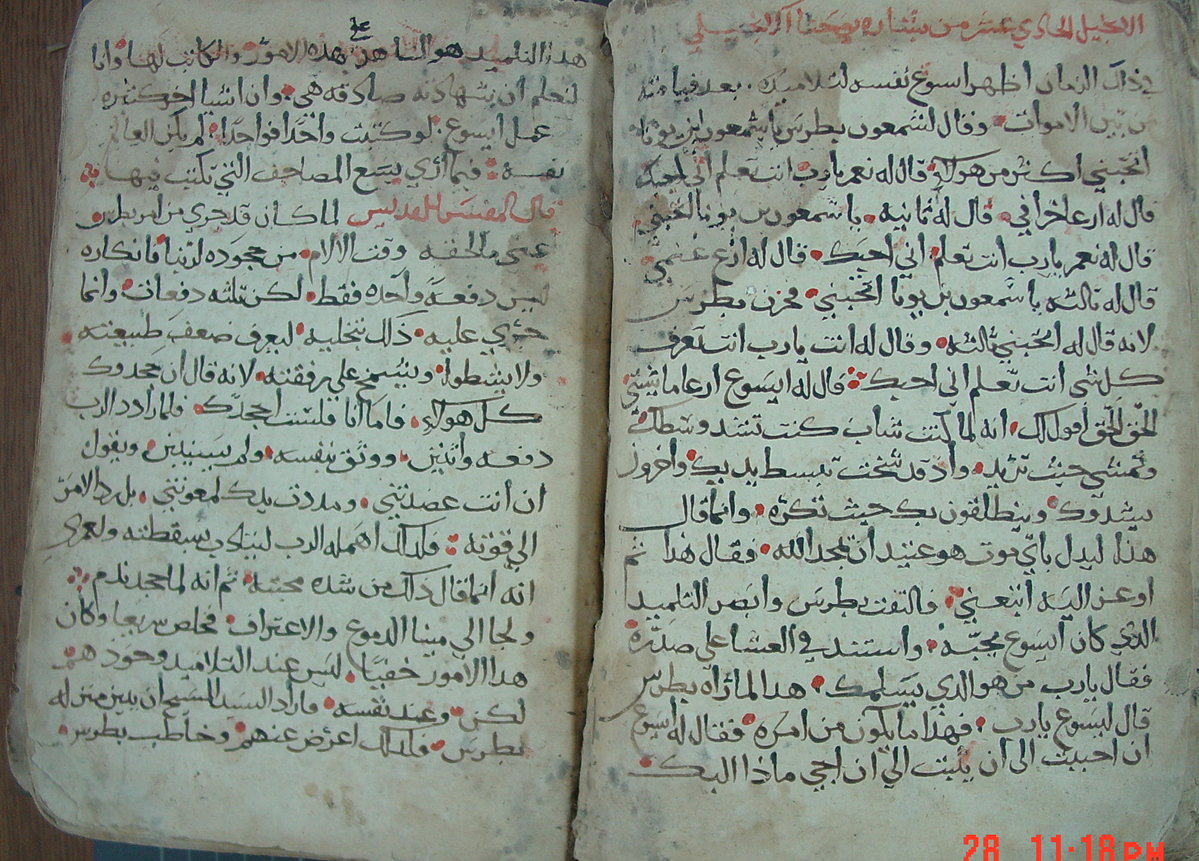 الانجيل الحادي عشر من بشارة يوحنا
في ذلك الزمان اظهر ايسوع نفسه لتلاميذه بعد قيامته
من بين الاموات وقال لشمعون بطرس ياشمعون ابن يونا
اتحبني اكثر من هولاي قال له نعم يارب انت تعلم اني احبك
قال له ارعا خرافي قال له ثانية يا شمعون بن يونا اتحبني
قال له نعم يارب انت تعلم اني احبك قال له ارع غنمي
قال له ثالثه يا شمعون بن يونا اتحبني فحزن بطرس
لانه قال له اتحبني ثالثه وقال له انت يارب انت تعرف
كل شي انت تعلم اني احبك قال له ايسوع ارعا
الحق الحق اقول لك انه لما كنت شاب كنت تشد وسطك
وتمشي حيث تريد واذ قد شخت تبسط يديك واخرون
يشدوك وينطلقون بك حيث تكره وانما قال
هذا ليدل باي موت هو عتيد ان يمجد الله فقال هذا ثم
اوعز اليه اتبعني فالتفت بطرس وابصر التلميذ
الذي كان ايسوع يحبه واستند في العشا على صدره
فقال يارب من هو الذي يسلمك هذا لما راه بطرس
قال ليسوع يارب فهذا ما يكون من امره فقال له ايسوع
ان احببت الى ان يثبت الي ان اجي ماذا اليك
هذا التلميذ هو الشاهد بهذه الامور والكاتب لها وانا
لنعلم ان شهادته صادقه هي وان اشيا اخر كثيره
عمل ايسوع لو كتبت واحدا فواحدا لم يكن العالم
نفسه فيما اري يسع المصاحف التي تكتب فيها
قال المفسر القديس لما كان قد جري من امر بطرس
عني ما لحقه وقت الالام من جحوده لربنا فانكاره
ليس دفعة واحده فقط لكن ثلثه دفعات وانما
جري عليه ذلك بتخليه ليعرف ضعف طبيعته
ولا يشطوا ويشمخ علي رفقته لانه قال ان جحدوك
كل هولاي فاما انا فلست اجحدك فلما رادد الرب
دفعه واثنين ووثق بنفسه ولم يسبيين ويقول
ان انت عضدتني ومددت يدك لمعونتي بل رد الامر
الي قوته فلذلك اهمله الرب ليتادب بسقطته ولعمري
انه انما قال ذلك من شده محبته ثم انه لما جحد ندم
ولجا الي مينا الدموع والاعتراف فخلص سريعا وكان
هذا الامور خفيا ليس عند التلاميذ وحودهم
لكن وعند نفسه فاراد السيد المسيح ان يبين منزله
بطرس فلذلك اعرض عنهم وخاطب بطرس
28 11:18 PM